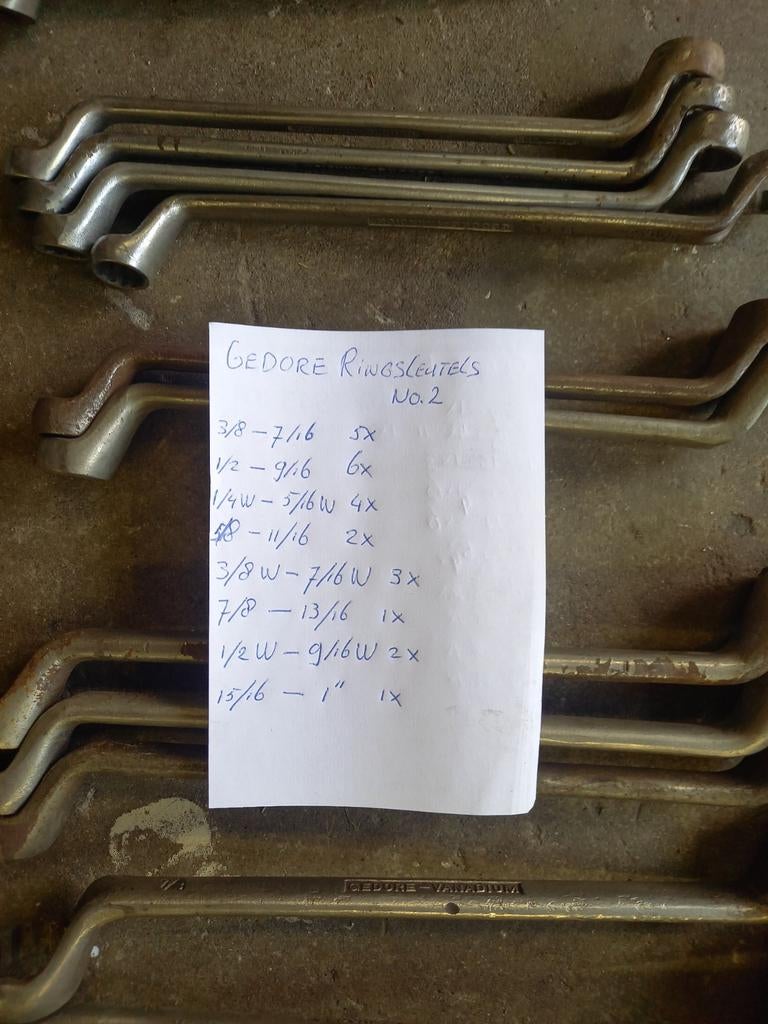 GEDORE RINGSLEUTELS
No. 2
3/8 – 7/16 5x
1/2 – 9/16 6x
1/4W – 5/16W 4x
5/8 – 11/16 2x
3/8W – 7/16W 3x
7/8 – 13/16 1x
1/2W – 9/16W 2x
15/16 – 1" 1x
7/8 GEDORE-VANADIUM